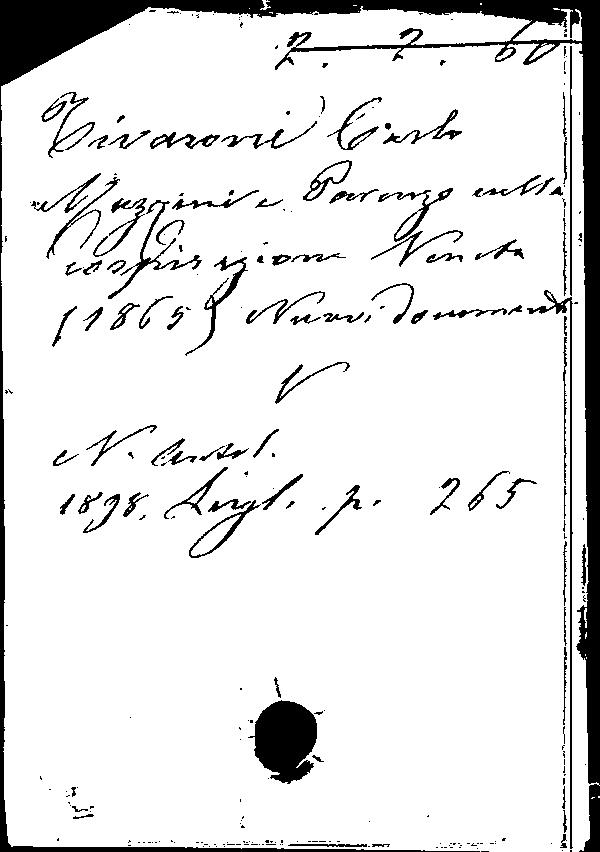 2. 2. 60
Tivaroni Carlo
Mazzini e nella
cospirazione Veneta
(1865) Nuovi documenti
V
N. Antol.
1898. Lugl. p. 265